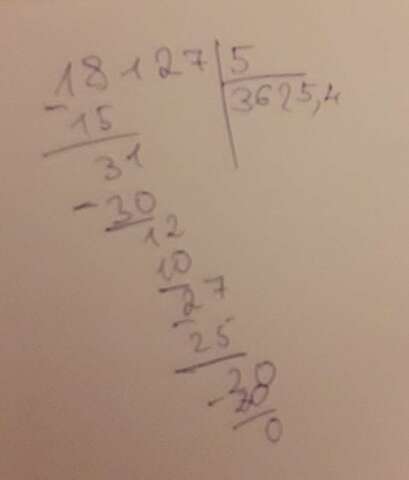 18127 5
- 15 3625,4
31
- 30
12
10
27
- 25
20
- 20
0